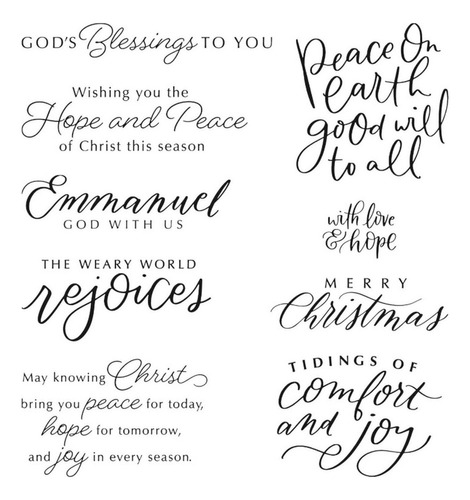 GOD'S Blessings TO YOU
Wishing you the
Hope and Peace
of Christ this season
Emmanuel
GOD WITH US
THE WEARY WORLD
rejoices
May knowing Christ
bring you peace for today,
hope for tomorrow,
and joy in every season.
Peace On
earth
good will
to all
with love
& hope
MERRY
Christmas
TIDINGS OF
comfort
and joy